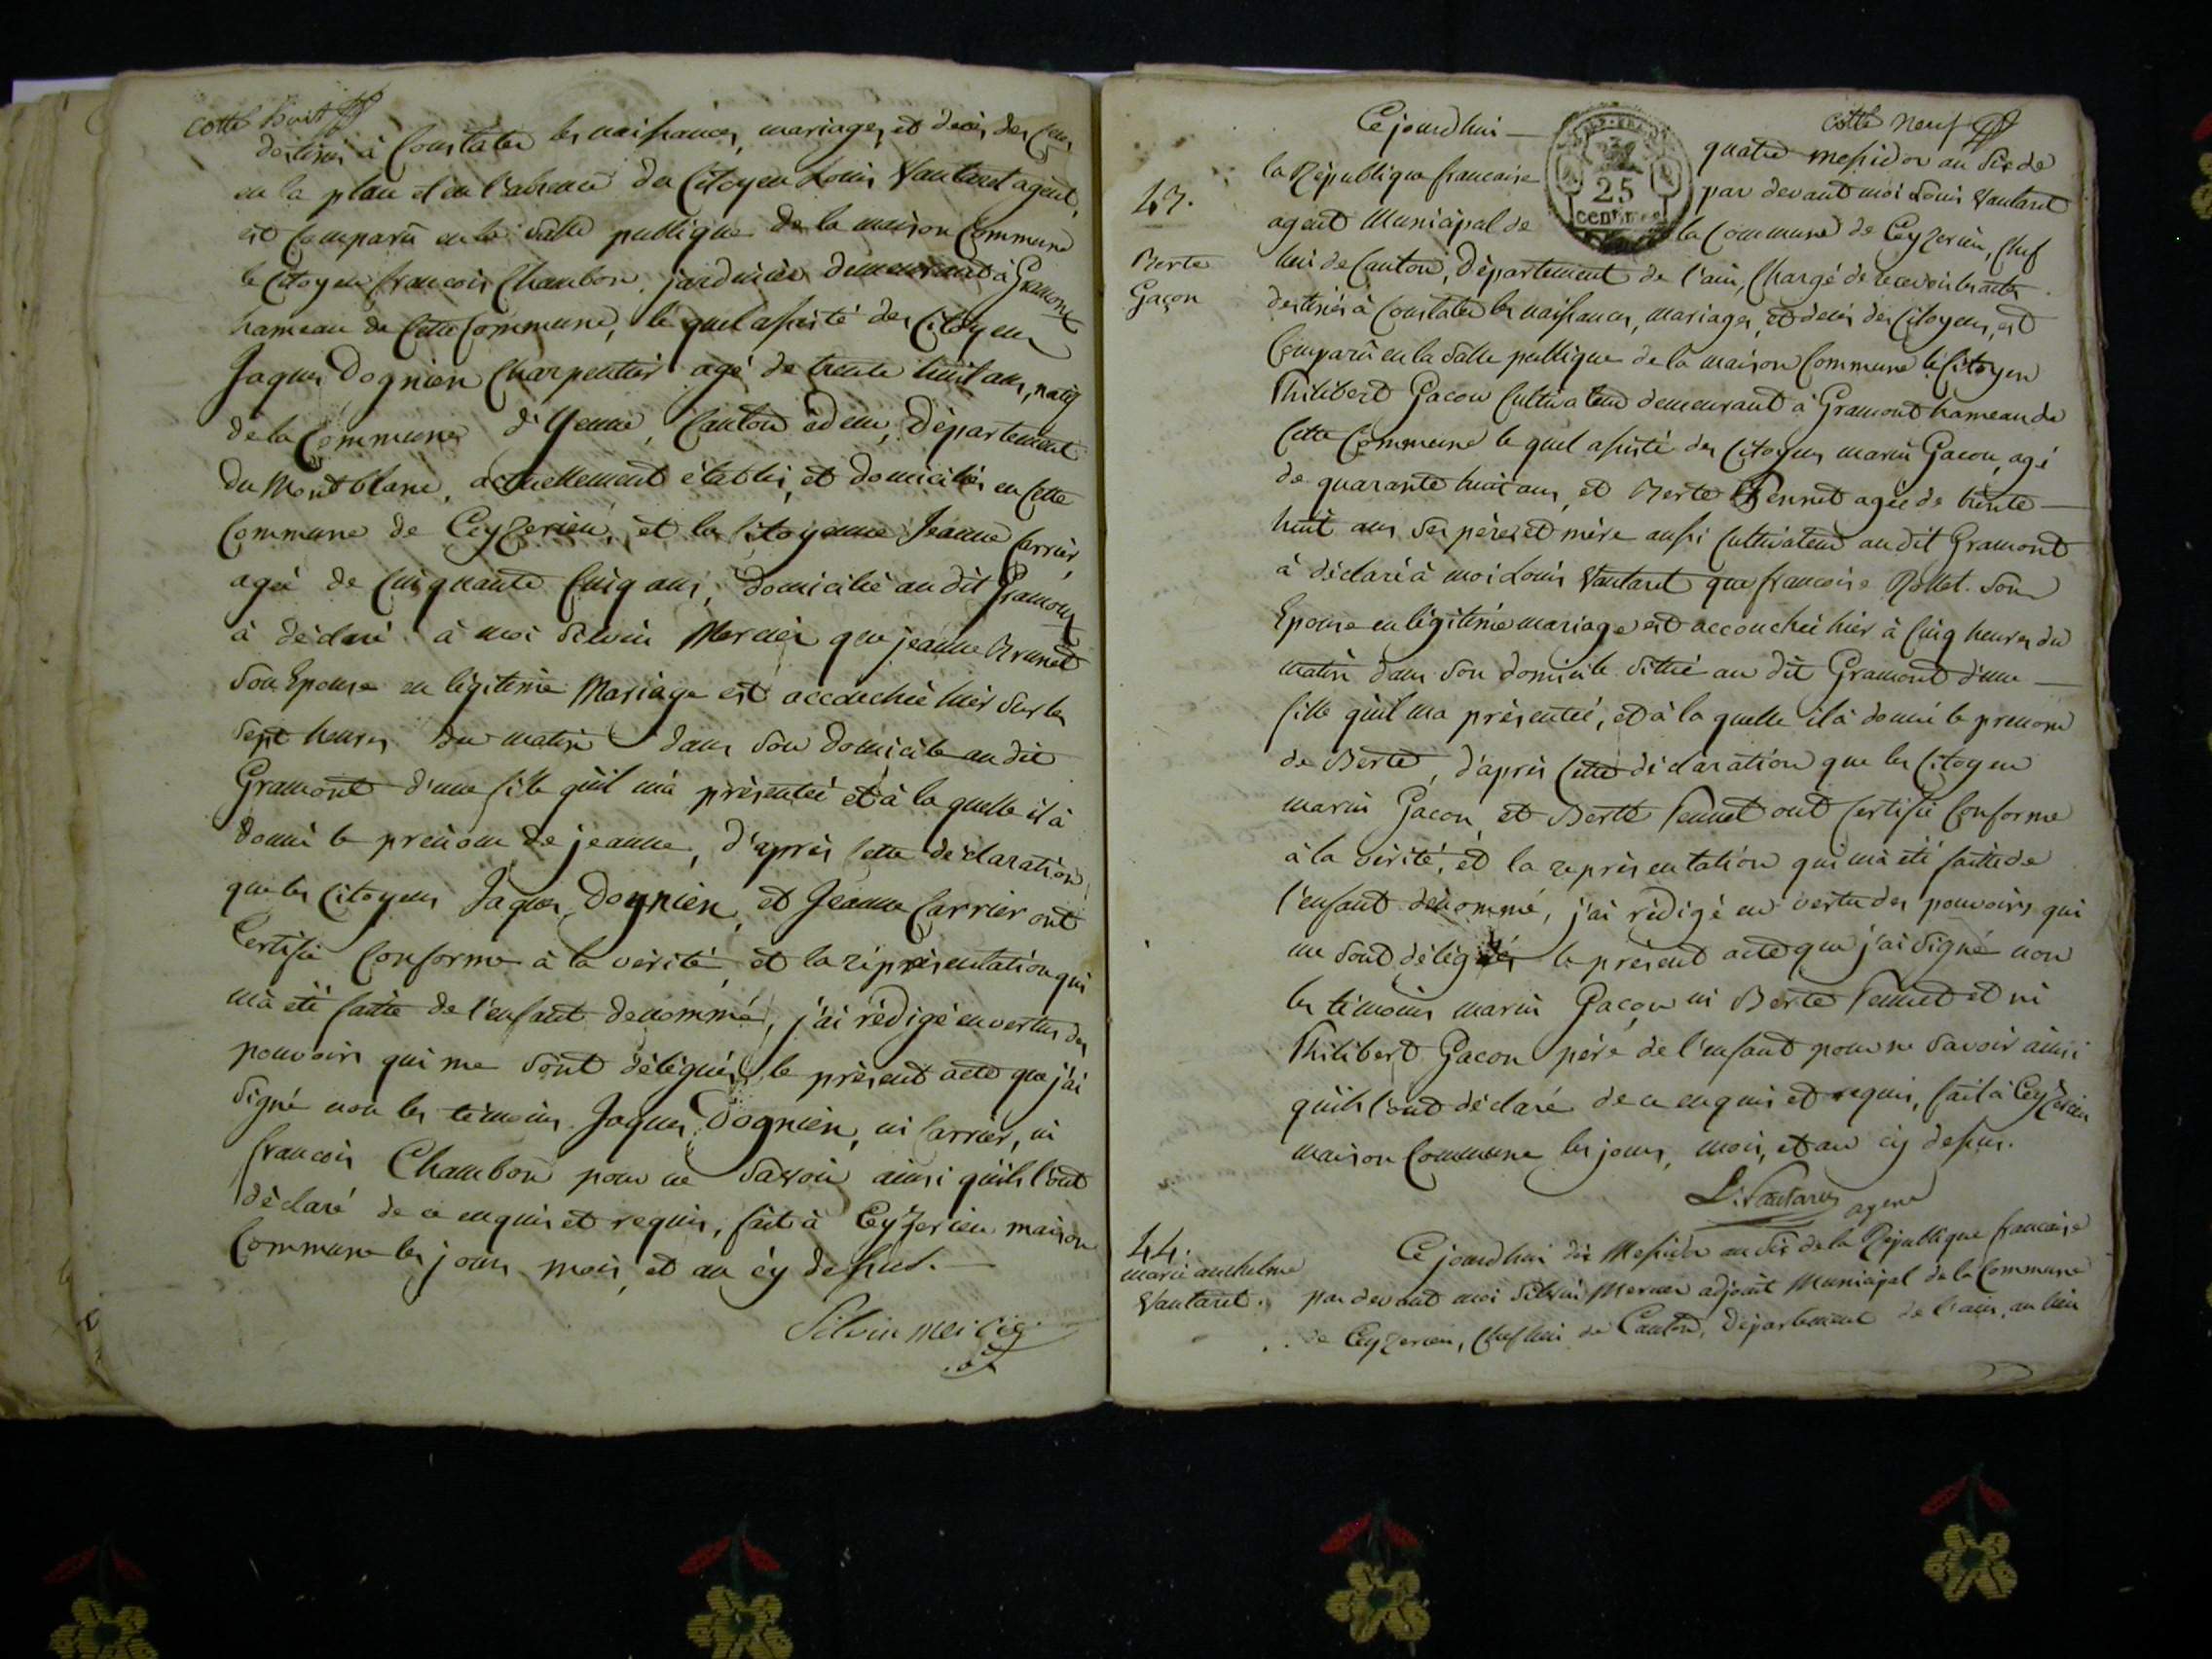 cotte huit
destinés à Constater les naissances, mariages et décès des Cens
en la place et en l'absence du Citoyen Louis Vautaret agent,
est Comparû en la Salle publique de la maison Commune
le Citoyen francois Chambon, jardinier demeurant à Gramont
hameau de Cette Commune, le quel assisté des Citoyens
Jaques Dognien Charpentier agé de trente huit ans, natif
de la Commune d'Yenne, Canton idem, Département
du Montblanc, actuellement établis, et domiciliés en Cette
Commune de Ceyzerieu, et la Citoyenne Jeanne Carrier,
agée de Cinquante Cinq ans, domiciliè au dit Gramont
à déclaré à moi Silvin Mercier que jeanne Brunet
Son Epouse en légitime Mariage est accouchée hier Sur les
Sept heures du matin dans Son Domicile au dit
Gramont d'une fille qu'il m'à présentée et à la quelle il à
donné le prénom de jeanne, d'après Cette déclaration
que les Citoyens Jaques Dognien, et Jeanne Carrier ont
Certifié Conforme à la vérité, et la réprésentation qui
m'à été faitte de l'enfant denommé, j'ai rédigé en vertus des
pouvoirs qui me Sont délégués, le présent acte que j'ai
Signé non les témoins Jaques Dognien, ni Carrier, ni
francois Chambon pour ne Savoir ainsi quils l'ont
déclaré de ce enquis et requis, fait à Ceyzerieu maison
Commune les jour, mois, et an cy dessus.
Silvin mercier
cotte neuf
Ce jourdhui quatre messidor an Six de
la République francaise par devant moi Louis Vautaret
43. agent Municipal de la Commune de Ceyzerieu, Chef
Berte lieu de Canton, Département de l'ain, Chargé de recevoir les actes
Gaçon destinés à Constater les naissances, mariages, et décès des Citoyens, est
Comparû en la Salle publique de la maison Commune le Citoyen
Philibert Gacon Cultivateur demeurant à Gramont hameau de
Cette Commune le quel assisté des Citoyens marin Gacon, agé
de quarante huit ans, et Berte Pennet agée de trente
huit ans Ses pères et mère aussi Cultivateur au dit Gramont
à déclaré à moi Louis Vautaret que francoise Son
Epouse en légitime mariage est accouchée hier à Cinq heures du
matin dans Son domicile Situé au dit Gramont d'une
fille quil ma présentée, et à la quelle il à donné le prenom
de Berte, d'après Cette déclaration que les Citoyen
marin Gacon, et Berte Pennet ont Certifié Conforme
à la vérité, et la représentation qui m'à été faitte de
l'enfant dénommé, j'ai rédigé en vertu des pouvoirs qui
me Sont délégués le présent acte que j'ai Signé non
les témoins marin Gaçon ni Berte Pennet et ni
Philibert Gacon père de l'enfant pour ne Savoir ainsi
quils l'ont déclaré de ce enquis et requis, fait à Ceyzerieu
maison Commune les jours, mois, et an cy dessus.
L. Vautaret agent
44. Ce jourdhui dix Messidor an Six de la République francaise
marie anthelme
Vautaret. par devant moi Silvin Mercier adjoint Municipal de la Commune
de Ceyzerieu, Chef lieu de Canton, Département de l'ain, au lieu
25
centimes